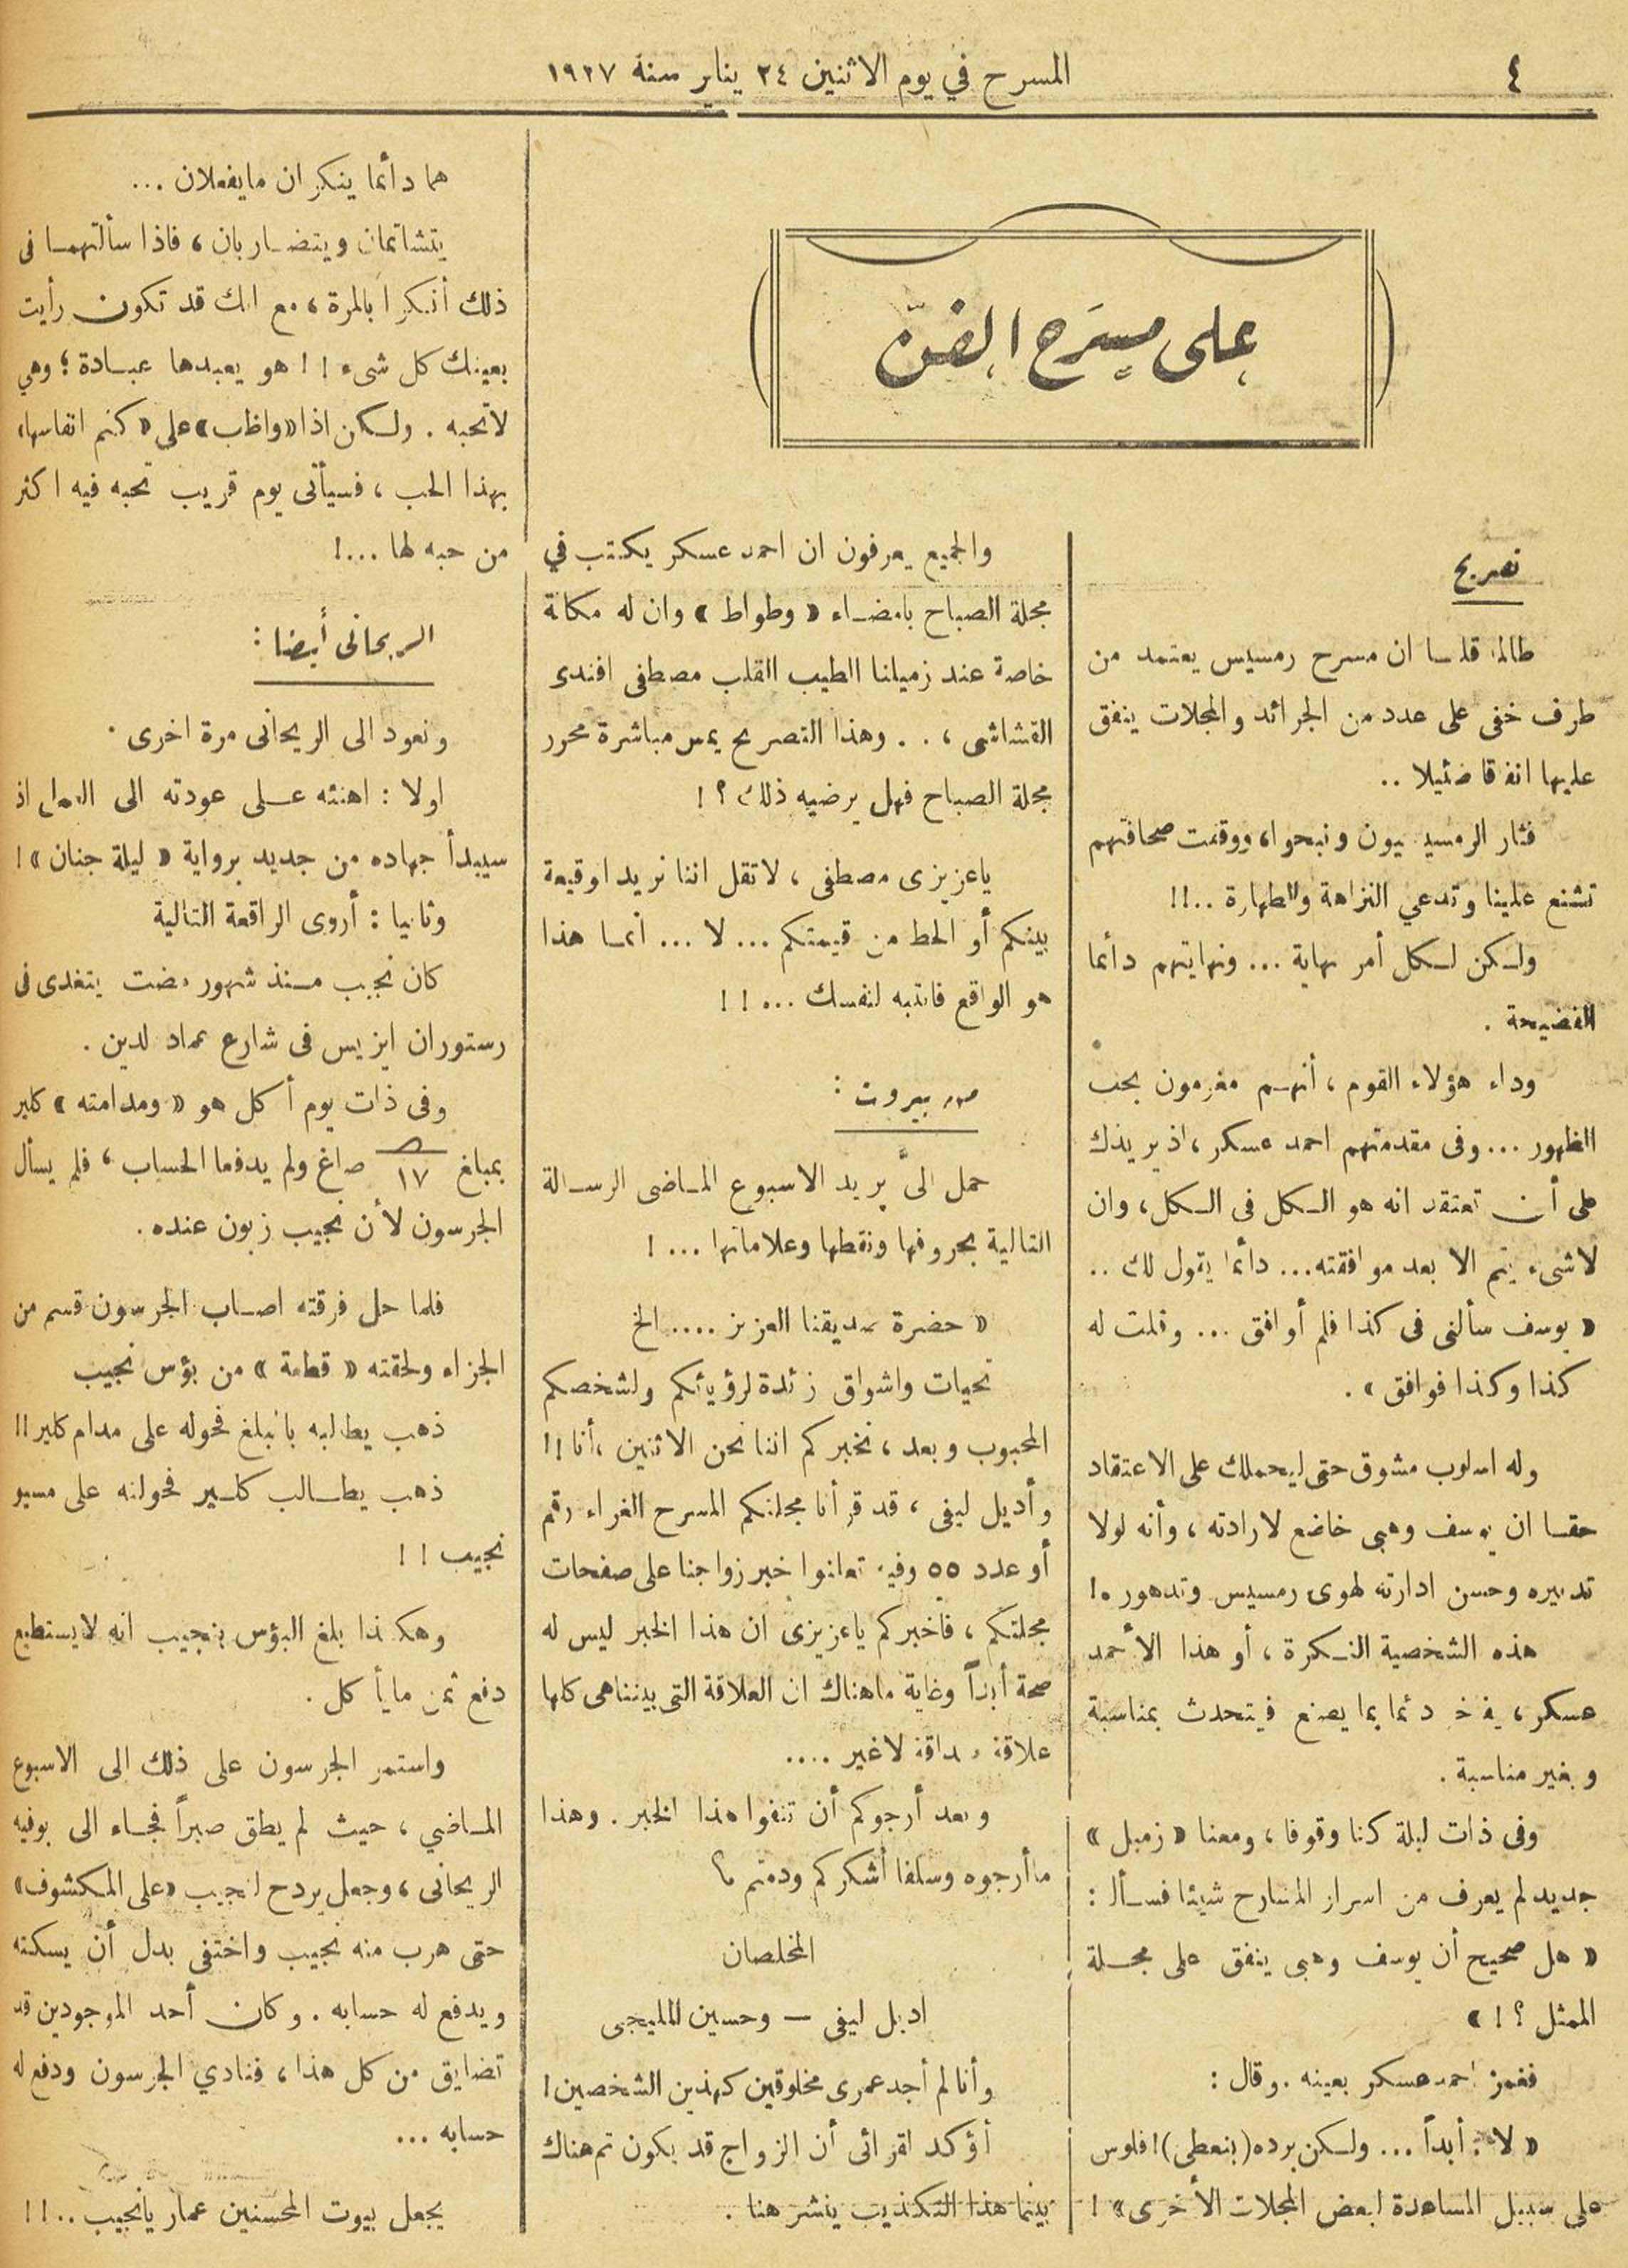 ٤
المسرح في يوم الاثنين ٢٤ يناير سنة ١٩٢٧
على مسرح الفن
تصريح
طالما قلنا ان مسرح رمسيس يعتمد من
طرف خفى على عدد من الجرائد والمجلات ينفق
عليها انفاقا ضئيلا ..
فثار الرمسيسيون ونبحوا، ووقفت صحافتهم
تشنع علينا وتدعي النزاهة والطهارة ..!!
ولكن لكل أمر نهاية ... ونهايتهم دأئما
الفضيحة .
وداء هؤلاء القوم ، أنهم مغرمون بحب
الظهور ... وفى مقدمتهم احمد عسكر ، اذ يريدك
على أن تعتقد انه هو الكل فى الكل، وان
لاشىء يتم الا بعد موافقته... دأئما يقول لك ..
« يوسف سألنى فى كذا فلم أوافق ... وقلت له
كذا وكذا فوافق » .
وله اسلوب مشوق حتى ليحملك على الاعتقاد
حقا ان يوسف وهبى خاضع لارادته ، وأنه لولا
تدبيره وحسن ادارته لهوى رمسيس وتدهور ه!
هذه الشخصية النكرة ، أو هذا الأحمد
عسكر ، يفخر دئما بما يصنع فيتحدث بمناسبة
وبغير مناسبة .
وفى ذات ليلة كنا وقوفا ، ومعنا « زميل »
جديد لم يعرف من اسرار المسارح شيئا فسأل :
« هل صحيح أن يوسف وهبى ينفق على مجلة
الممثل ؟ ! »
فغمز احمد عسكر بعينه . وقال :
« لا . أبداً ... ولكن برده (بنعطى) افلوس
على سبيل المساعدة لبعض المجلات الأخرى » !
والجميع يعرفون ان احمد عسكر يكتب في
مجلة الصباح بامضاء « وطواط » وان له مكانة
خاصة عند زميلنا الطيب القلب مصطفى افندى
القشاشى ، . . وهذا التصريح يمس مباشرة محرر
مجلة الصباح فهل يرضيه ذلك ؟ !
ياعزيزى مصطفى ، لاتقل اننا نريد اوقيعة
بينكم أو الحط من قيمتكم ... لا ... انما هذا
هو الواقع فانتبه لنفسك ... ! !
من بيروت :
حمل الىَّ بريد الاسبوع الماضى الرسالة
التالية بحروفها ونقطها وعلاماتها ... !
« حضرة صديقنا العزيز .... الخ
تحيات واشواق زئدة لرؤيائكم ولشخصكم
المحبوب وبعد ، نخبركم اننا نحن الاثنين ، أنا !!
وأديل ليفى ، قد قرأنا مجلتكم المسرح الغراء رقم
أو عدد ٥٥ وفيه تعلنوا خبر زواجنا على صفحات
مجلتكم ، فاخبركم ياعزيزى ان هذا الخبر ليس له
صحة أبداً وغاية ماهناك ان العلاقة التى بينناهى كلها
علاقة صداقة لاغير ....
وبعد أرجوكم أن تنفوا هذا الخبر . وهذا
ماأرجوه وسلفا أشكركم ودمتم ؟
المخلصان
اديل ليفى — وحسين المليجى
وأنا لم أجد عمرى مخلوقين كهذين الشخصين!
أؤكد لقرائى أن الزواج قد يكون تم هناك
بينما هذا التكذيب ينشر هنا .
هما دأئما ينكران مايفعلان ...
يتشاتمان ويتضاربان ، فاذا سألتهما فى
ذلك أنكرا بالمرة ، مع انك قد تكون رأيت
بعينك كل شىء ! ! هو يعبدها عبادة ؛ وهي
لاتحبه . ولكن اذا «واظب» على « كتم انفاسها،
بهذا الحب ، فسيأتى يوم قريب تحبه فيه اكثر
من حبه لها ...!
الريحانى أيضا :
ونعود الى الريحانى مرة اخرى .
اولا : اهنئه على عودته الى العمل اذ
سيبدأ جهاده من جديد برواية « ليلة جنان » !
وثانيا : أروى الراقعة التالية
كان نجيب منذ شهور مضت يتغدى فى
رستوران ايزيس فى شارع عماد لدين .
وفى ذات يوم أكل هو « ومدامته » كلير
بمبلغ ١٧ صاغ ولم يدفعا الحساب ، فلم يسأل
الجرسون لأن نجيب زبون عنده .
فلما حل فرقته اصاب الجرسون قسم من
الجزاء ولحقته « قطمة » من بؤس نجيب
ذهب يطالبه بالمبلغ فحوله على مدام كلير !!
ذهب يطالب كلير فحولته على مسيو
نجيب ! !
وهكذا بلغ البؤس بنجيب انه لايستطيع
دفع ثمن مايأ كل .
واستمر الجرسون على ذلك الى الاسبوع
الماضي ، حيث لم يطق صبراً فجاء الى بوفيه
الريحانى ، وجعل يردح لنجيب «على المكشوف»
حتى هرب منه نجيب واختفى بدل أن يسكته
ويدفع له حسابه . وكان أحد الموجودين قد
تضايق من كل هذا ، فنادي الجرسون ودفع له
حسابه ...
يجعل بيوت المحسنين عمار يانجيب ..!!